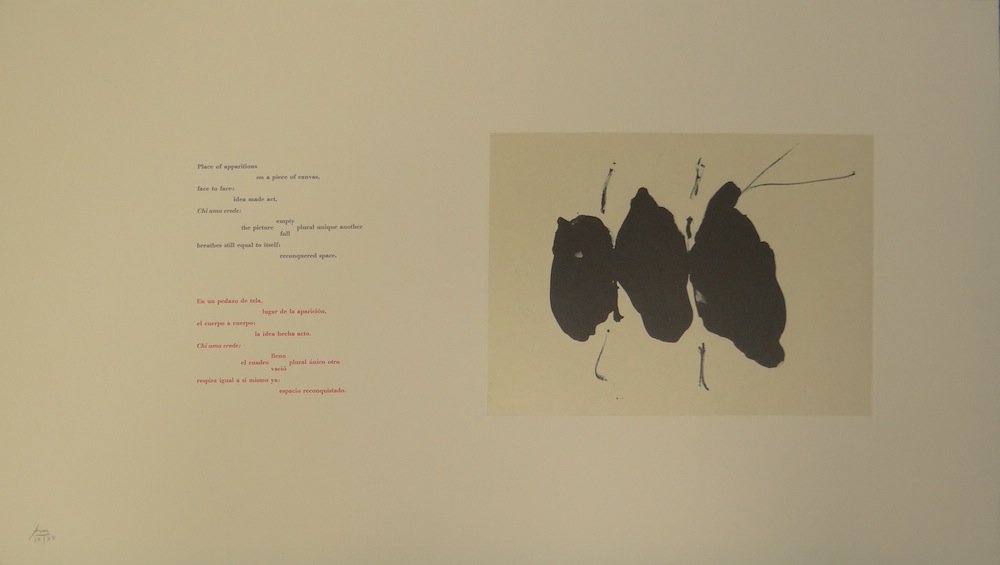 Place of apparitions
on a piece of canvas,
face to face:
idea made act.
Chi ama crede:
empty
the picture plural unique another
full
breathes still equal to itself:
reconquered space.
En un pedazo de tela,
lugar de la aparición,
el cuerpo a cuerpo:
la idea hecha acto.
Chi ama crede:
lleno
el cuadro plural único otro
vació
respira igual a sí mismo ya:
espacio reconquistado.